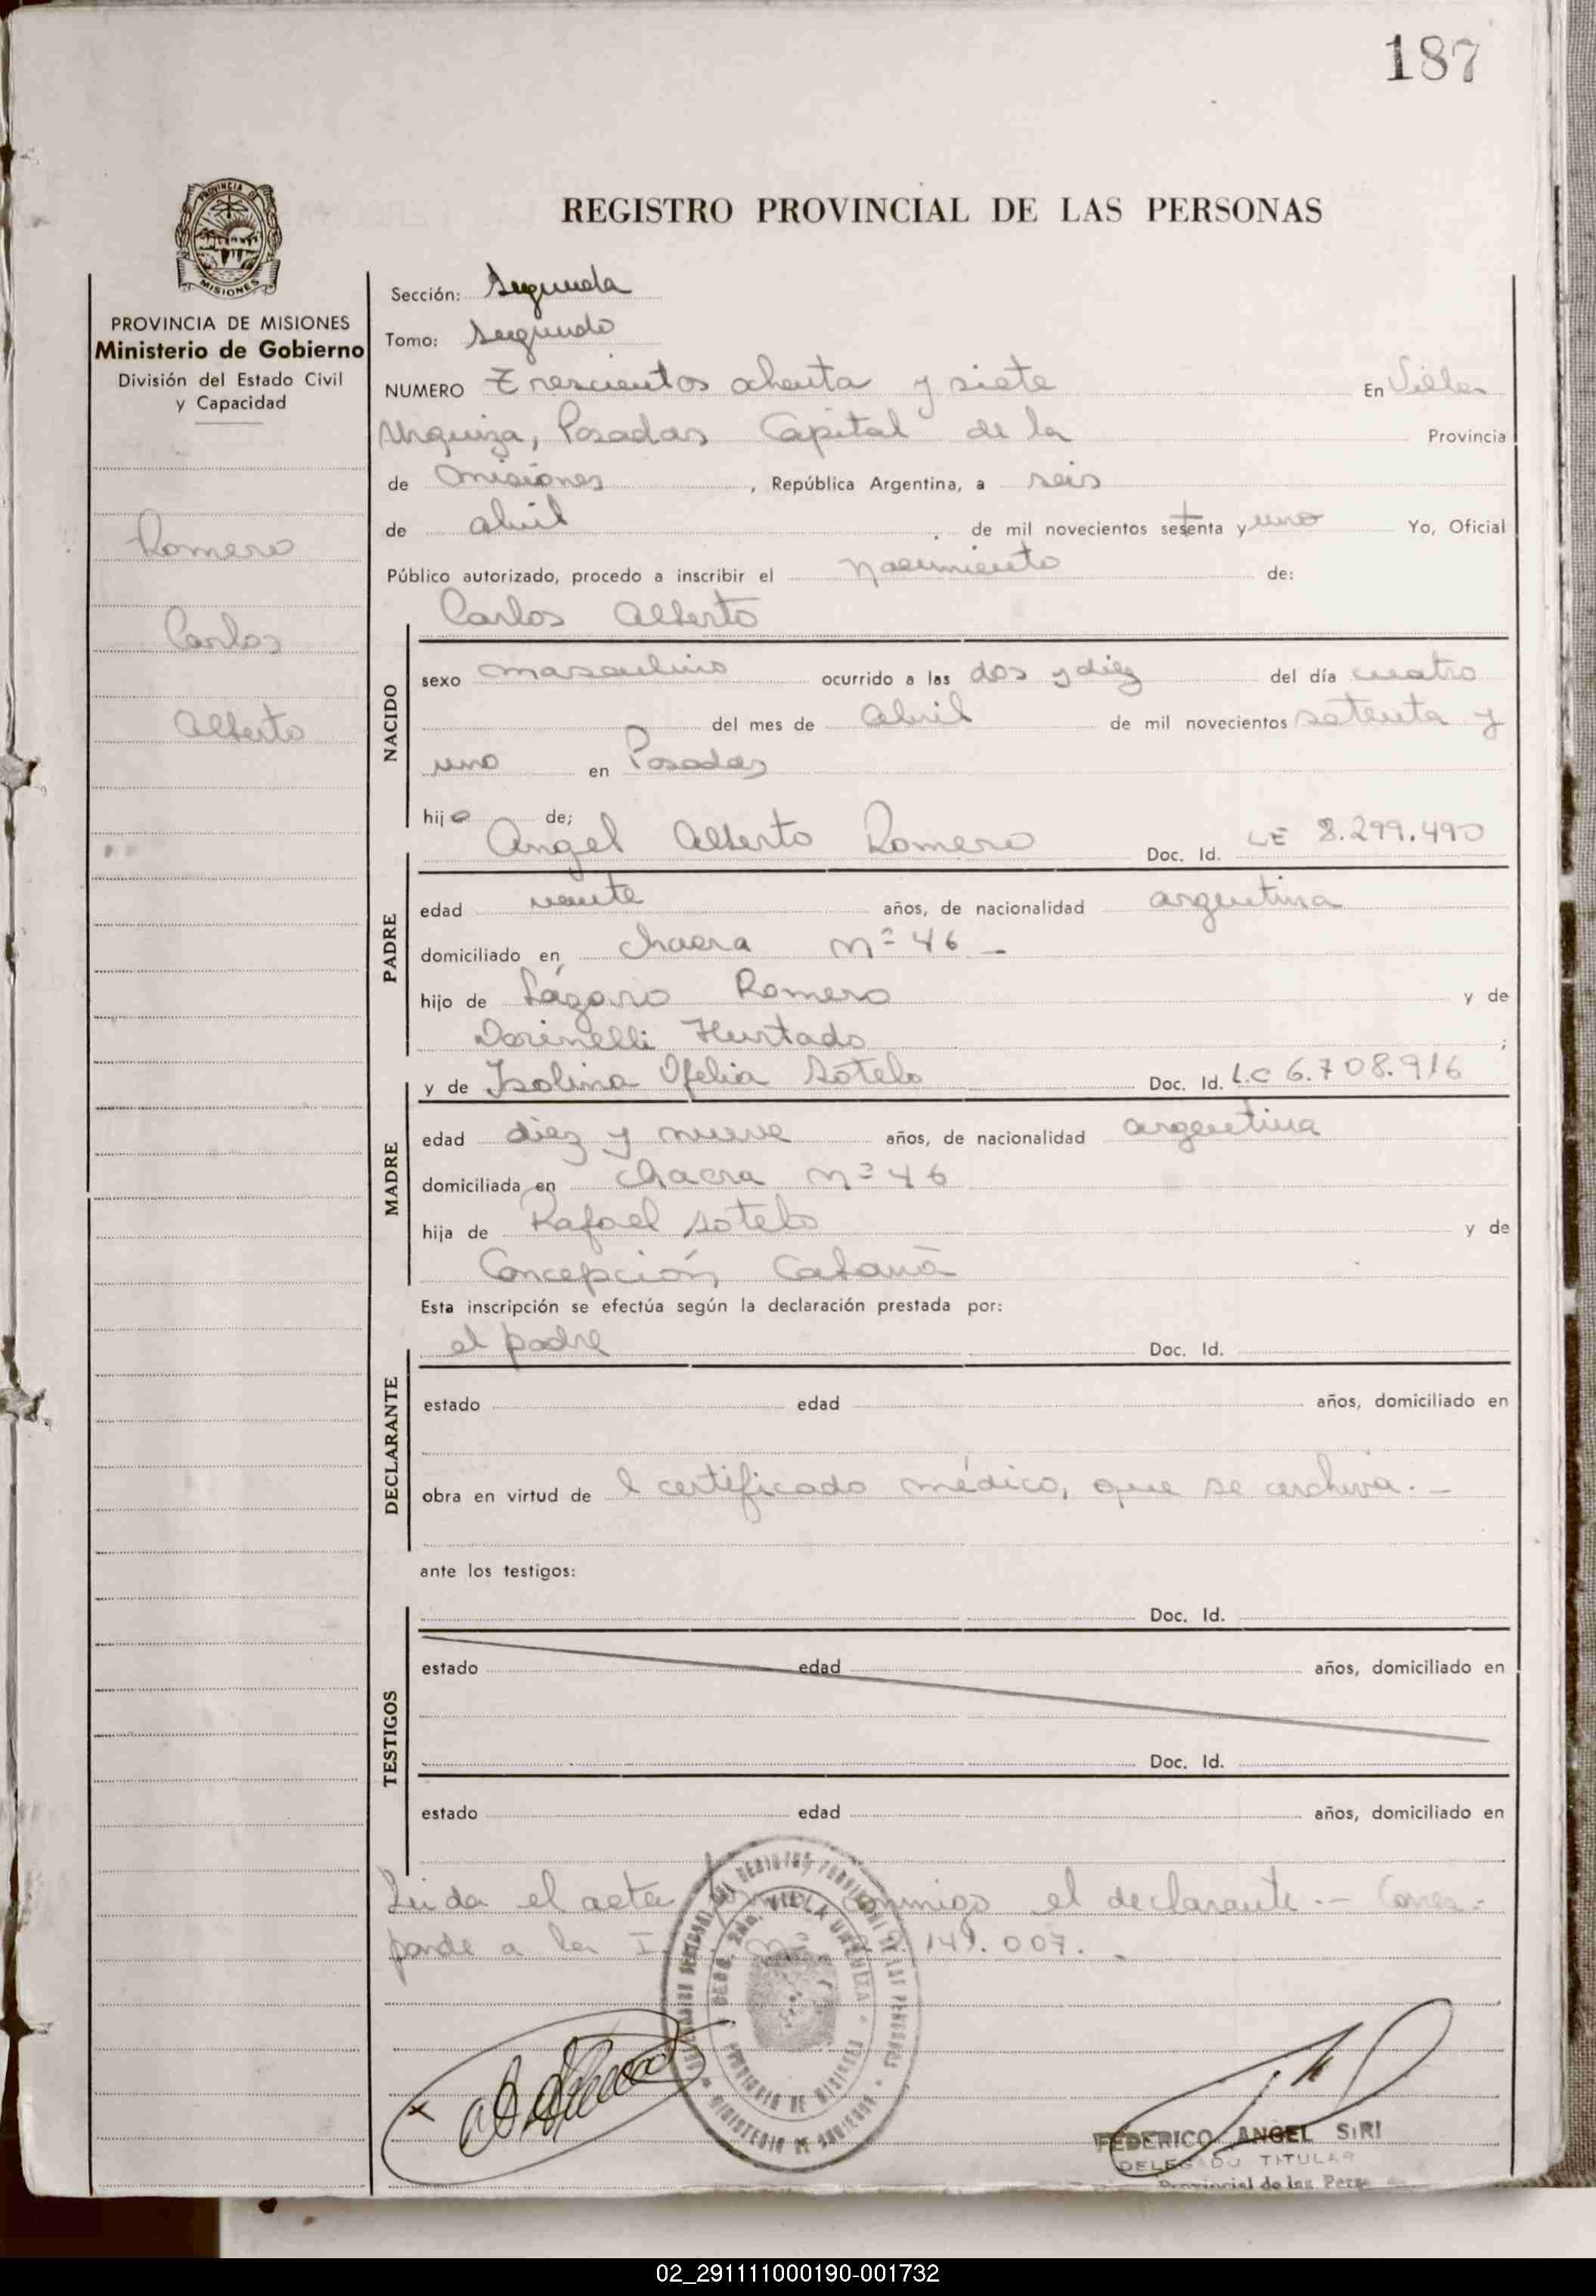 187
REGISTRO PROVINCIAL DE LAS PERSONAS
PROVINCIA DE MISIONES
PROVINCIA DE MISIONES
Ministerio de Gobierno
División del Estado Civil
y Capacidad
Romero
Carlos
Alberto
Sección: Segunda
Tomo: Segundo
NUMERO Trescientos ochenta y siete En Villa
Urquiza, Posadas Capital de la Provincia
de Misiones, República Argentina, a seis
de abril de mil novecientos setenta y uno Yo, Oficial
Público autorizado, procedo a inscribir el nacimiento de:
Carlos Alberto
NACIDO
sexo masculino ocurrido a las dos y diez del día cuatro
del mes de abril de mil novecientos setenta y
uno en Posadas
hijo de;
Angel Alberto Romero Doc. Id. LE 8.299.490
PADRE
edad veinte años, de nacionalidad argentina
domiciliado en chacra nº 46 -
hijo de Lázaro Romero y de
Dorinelli Hurtado ;
y de Isolina Ofelia Sotelo Doc. Id. L.C 6.708.916
MADRE
edad diez y nueve años, de nacionalidad argentina
domiciliada en chacra nº 46
hija de Rafael Sotelo y de
Concepción
Esta inscripción se efectúa según la declaración prestada por:
el padre Doc. Id.
DECLARANTE
estado edad años, domiciliado en
obra en virtud de l certificado médico, que se archiva. -
ante los testigos:
Doc. Id.
TESTIGOS
estado edad años, domiciliado en
Doc. Id.
estado edad años, domiciliado en
Leida el acta conmigo el declarante. - Corres-
ponde a la 149.007.
VILLA URQUIZA
PROVINCIA DE MISIONES
MINISTERIO DE GOBIERNO
FEDERICO ANGEL SIRI
DELEGADO TITULAR
Provincial de las Perso
02_291111000190-001732